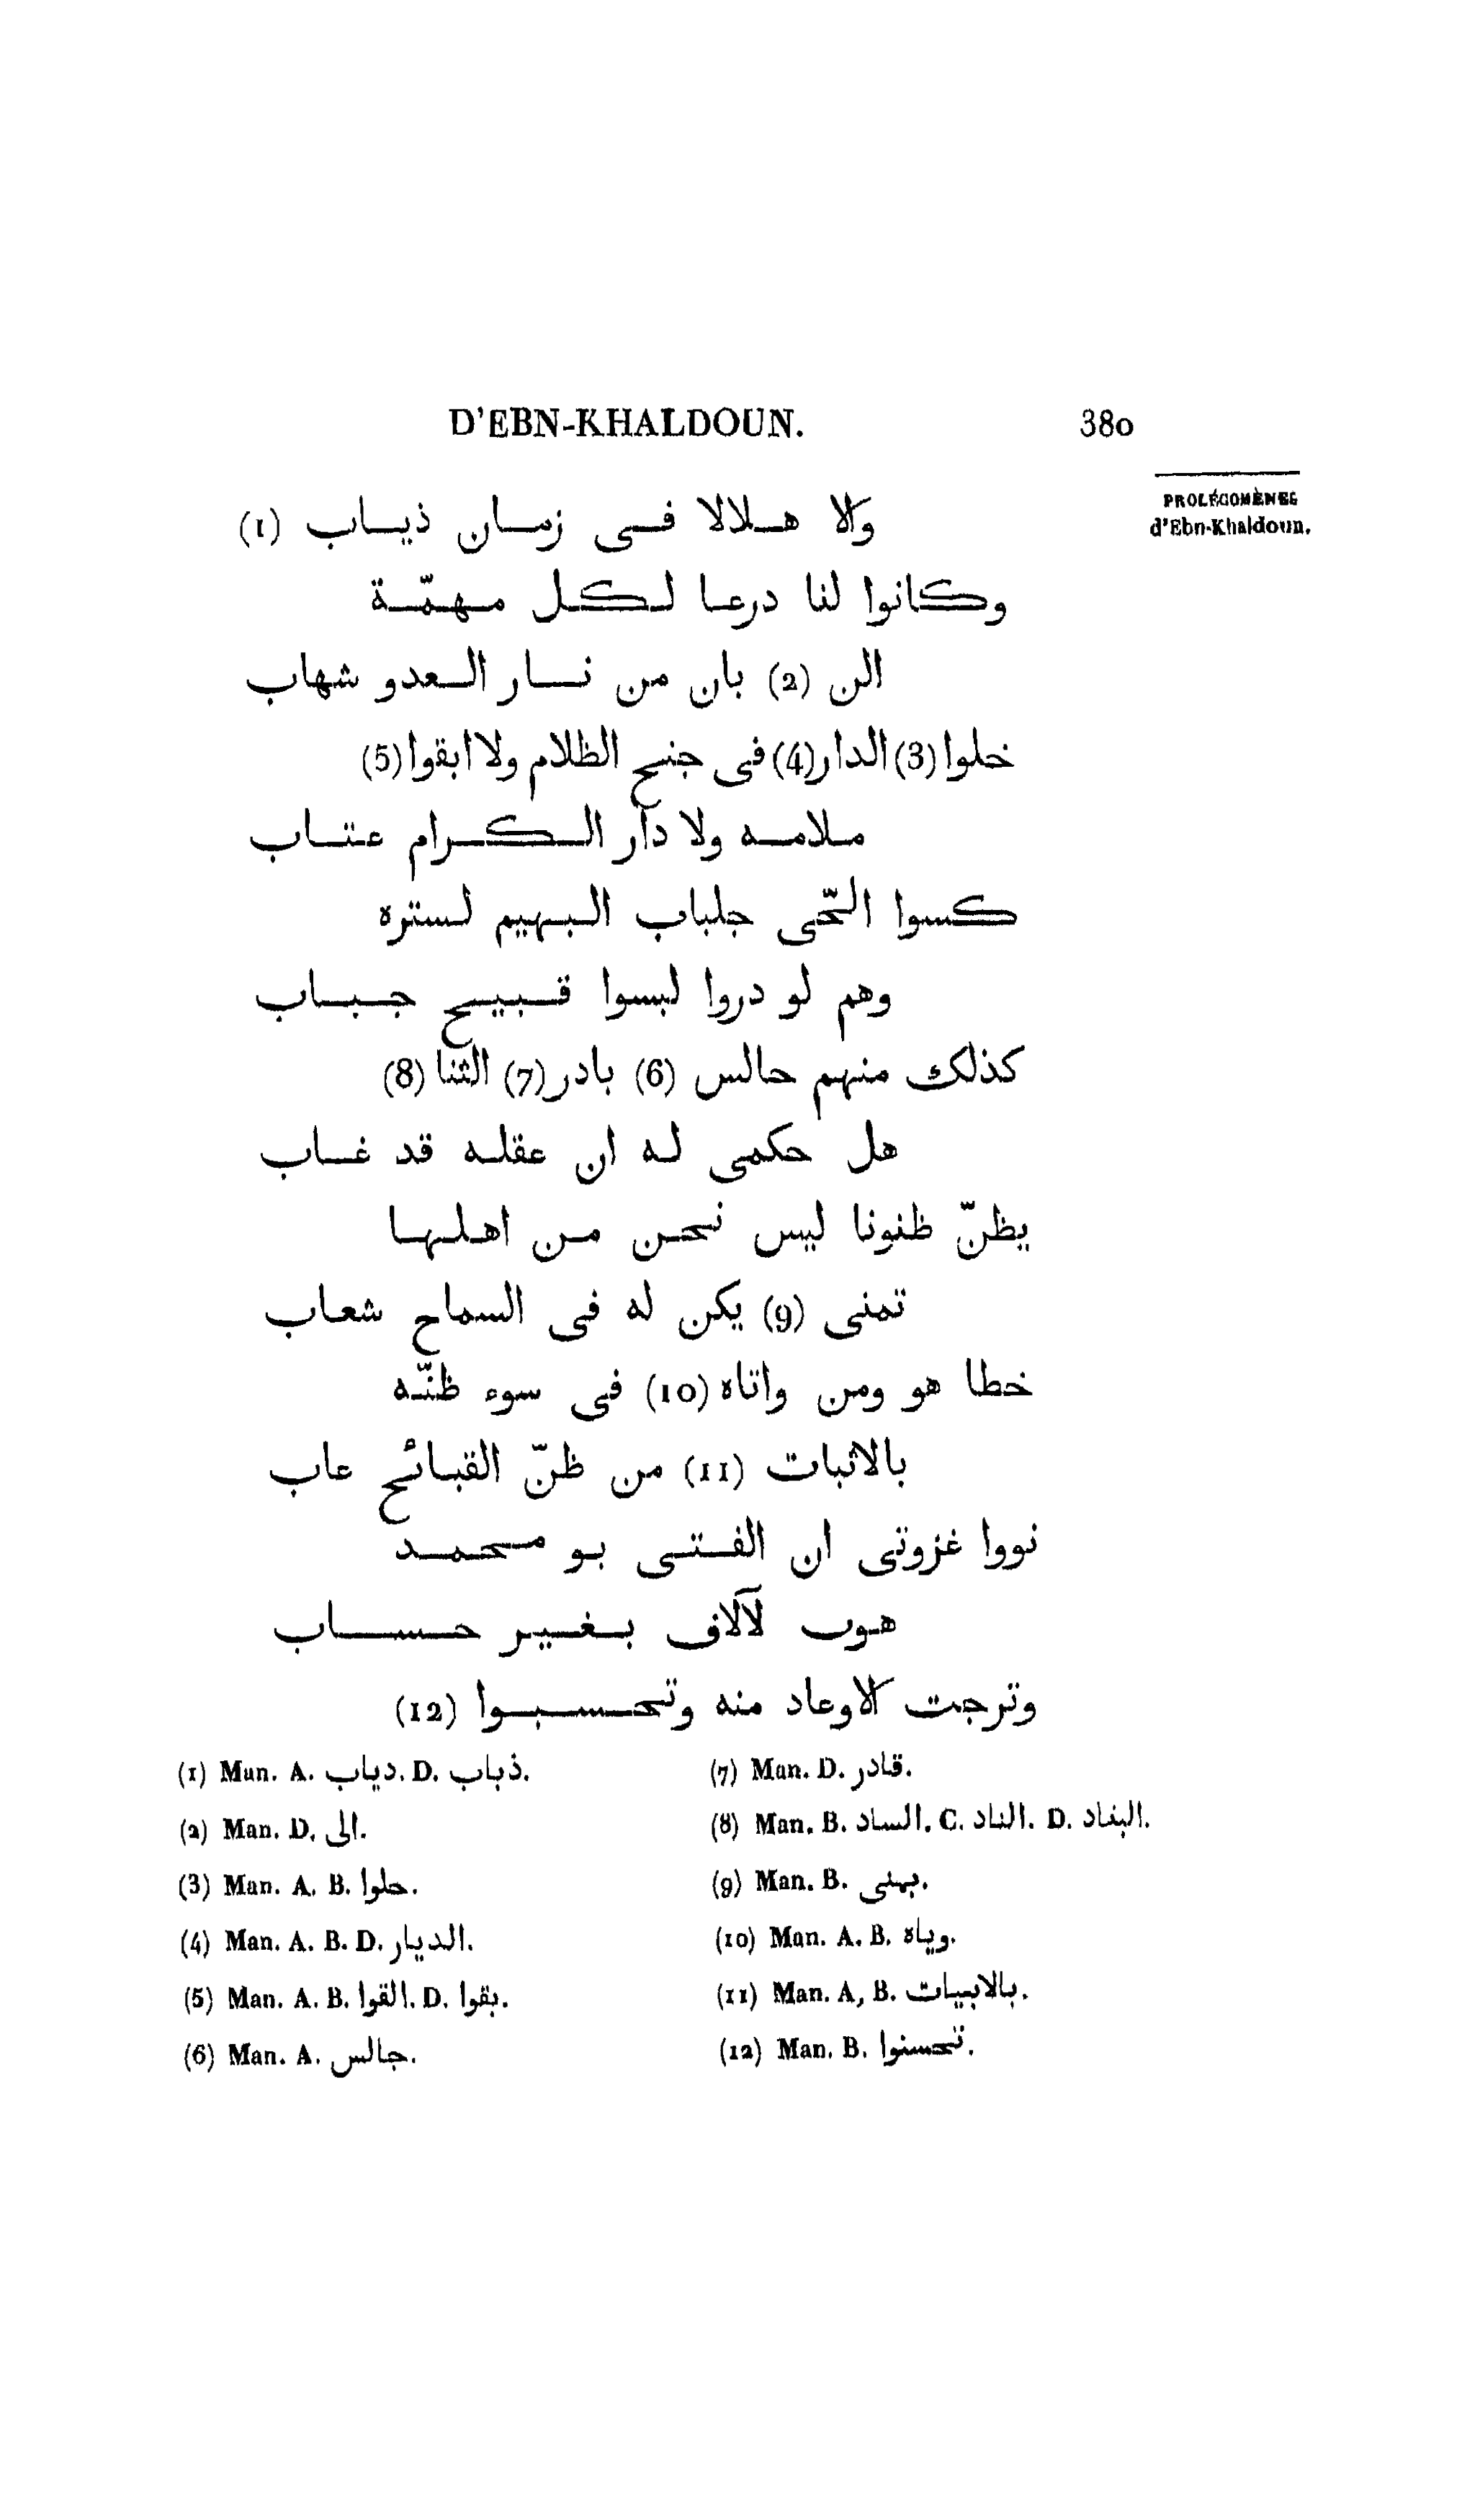 D'EBN-KHALDOUN. 380
PROLÉGOMÈNES
d'Ebn-Khaldoun.
ولا هلالا فى زمان ذياب (1)
وكانوا لنا درعا لكل مهمّة
الن (2) بان من نار العدو شهاب
خلوا (3) الدار (4) فى جنح الظلام ولا ابقوا (5)
ملامه ولا دار الكرام عتاب
كسوا الحّى جلباب البهيم لستره
وهم لو دروا لبسوا قبيح جباب
كذلك منهم حالس (6) بادر (7) الثنا (8)
هل حكمى له ان عقله قد غاب
يظنّ ظنونا ليس نحن من اهلها
تمنى (9) يكن له فى السماح شعاب
خطا هو ومن واتاه (10) فى سوء ظنّه
بالاثبات (11) من ظنّ القبائح عاب
نووا غزوتى ان الفتى بو محمد
هوب لآلاف بغير حساب
وترجت الاوعاد منه وتحسبوا (12)
(1) Man. A. دياب. D. ذباب.
(2) Man. D. الى.
(3) Man. A. B. حلوا.
(4) Man. A. B. D. الديار.
(5) Man. A. B. القوا. D. بقوا.
(6) Man. A. جالس.
(7) Man. D. قادر.
(8) Man. B. الساد. C. الناد. D. البناد.
(9) Man. B. بهنى.
(10) Man. A. B. وياه.
(11) Man. A, B. بالابيات.
(12) Man. B. تحسنوا.